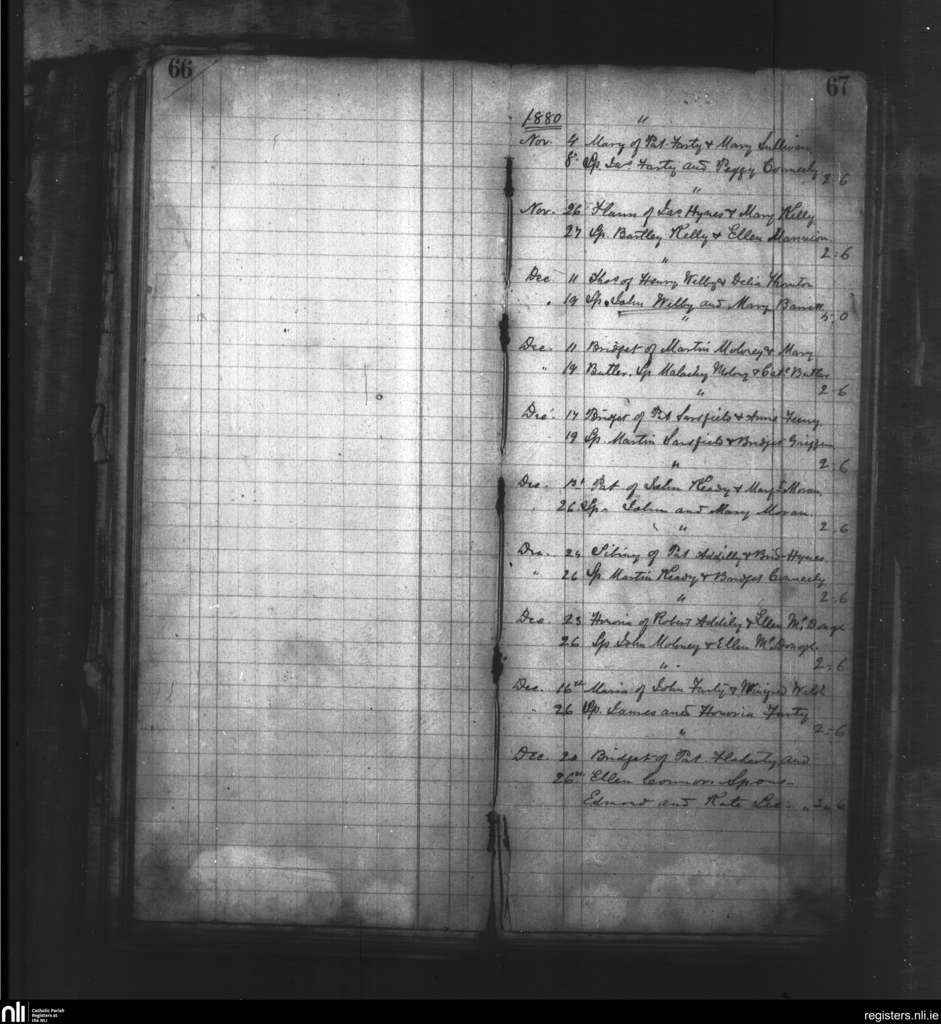 66
67
1880
"
Nov. 4 Mary of Pat Farty & Mary Sullivan
8th Sp. Jas Farty and Peggy Conneely 2-6
"
Nov. 26 of Jas Hynes & Mary Kelly
27 Sp. Bartley Kelly & Ellen Mannion
2-6
"
Dec 11 Thos of Henry Welby & Delia Thornton
" 19 Sp. John Welby and Mary Barrett
5-0
"
Dec. 11 Bridget of Martin Moloney & Mary
" 19 Butler. Sp Malachy Molony & Cath Butler
2-6
"
Dec 17 Bridget of Pat Sarsfield & Anne Feeny
19 Sp. Martin Sarsfield & Bridget Griffin
2-6
"
Dec. of John Keady & Margt Moran
26 Sp. John and Mary Moran
2-6
"
Dec. 24 of Pat Addilly & Brid Hynes
" 26 Sp. Martin Keady & Bridget Conneely
2-6
"
Dec. 23 Honoria of Robert Addily & Ellen McDonogh
26 Sp John Moloney & Ellen McDonogh
2-6
"
Dec. 16th Maria of John Farty & Winifred Welsh
" 26 Sp. James and Honoria Farty
2-6
"
Dec. 20 Bridget of Pat Flaherty and
26th Ellen Connors Spons-
Edmond and Kate Lee - " 2-6
nli
Catholic Parish
Registers at
the NLI
registers.nli.ie